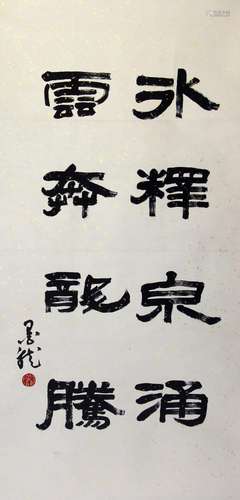 冰釋泉涌
雲奔龍騰
墨龍